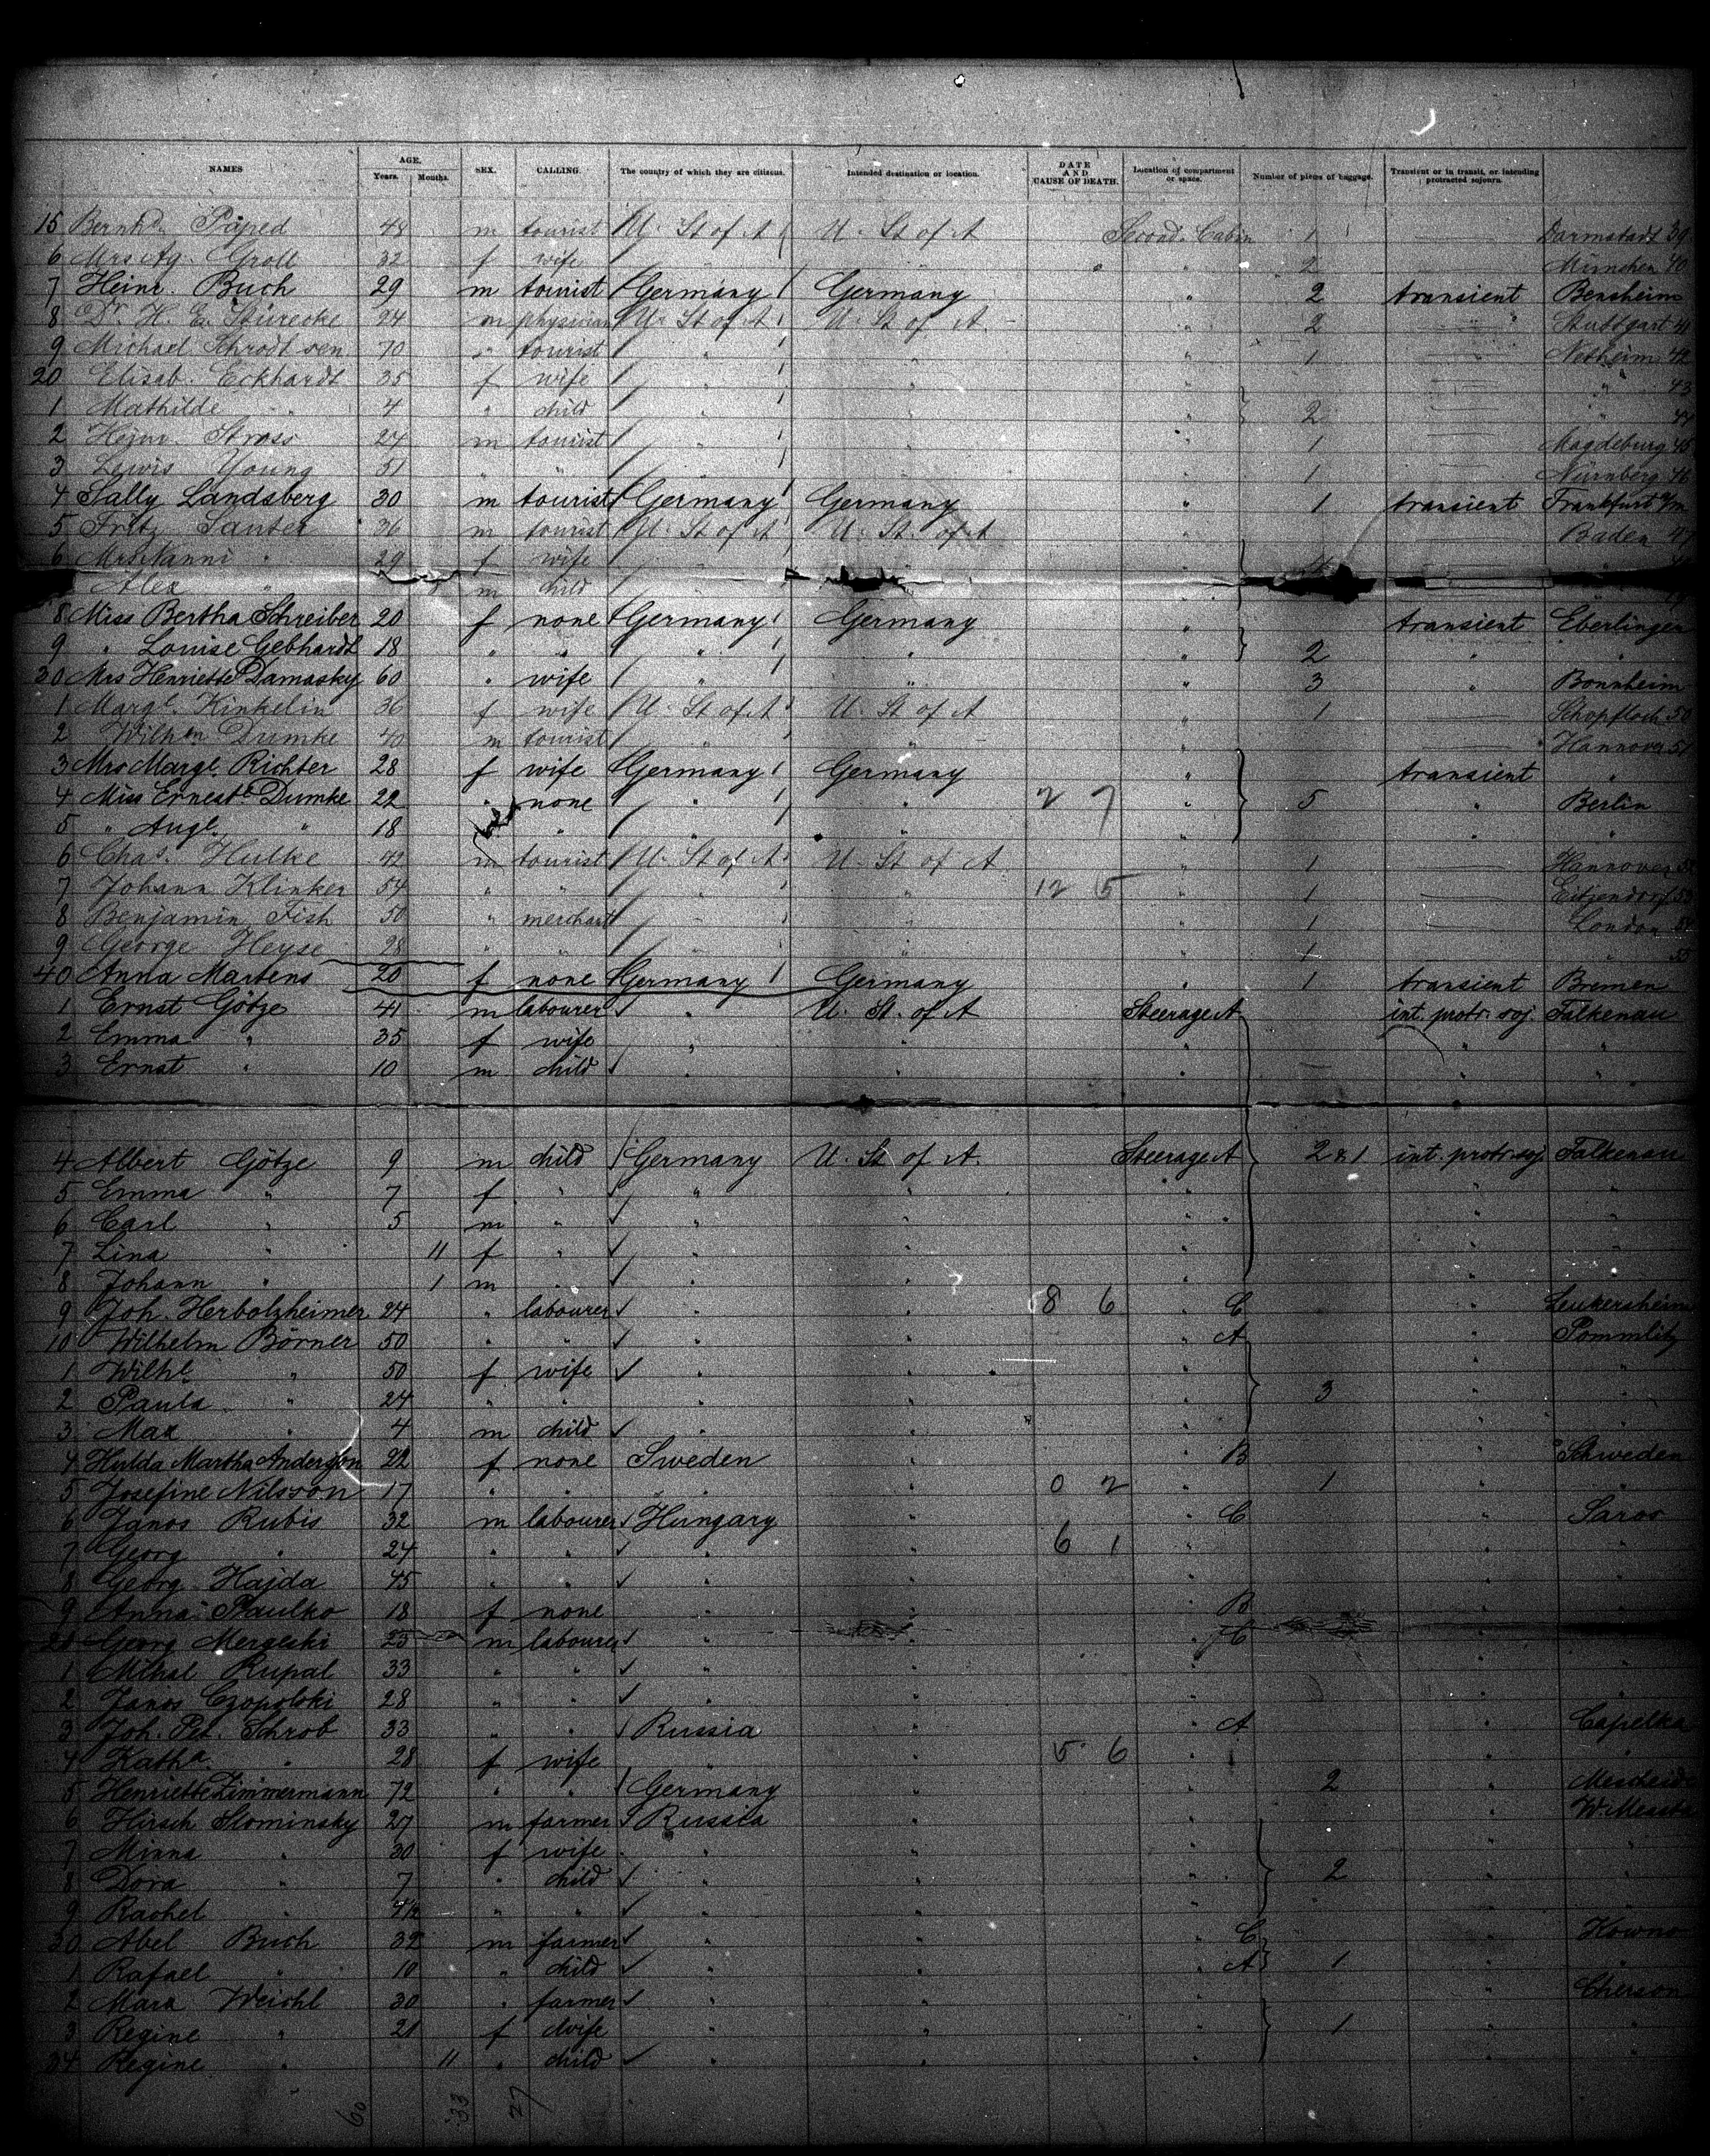 NAMES AGE. Years. Months. SEX. CALLING. The country of which they are citizens. Intended destination or location. DATE AND CAUSE OF DEATH. Location of compartment or space. Number of pieces of baggage. Transient or in transit, or intending protracted sojourn.
15 Bernhd. Päped 48 m tourist U. St of A U. St of A Second Cabin 1 Darmstadt 39
6 Mrs Ag. Groll 32 f wife " " " 2 München 40
7 Heinr. Buch 29 m tourist Germany Germany " 2 transient Bensheim
8 Dr. H. E. Stürecke 24 m physician U. St of A U. St of A " 2 Stuttgart 41
9 Michael Schrodt sen 70 " tourist " " " 1 Netheim 42
20 Elisab. Eckhardt 35 f wife " " " " 43
1 Mathilde " 4 " child " " " 2 " 44
2 Heinr. Stross 24 m tourist " " " 1 Magdeburg 45
3 Lewis Young 51 " " " " " 1 Nürnberg 46
4 Sally Landsberg 30 m tourist Germany Germany " 1 transient Frankfurt a/m
5 Fritz Santer 36 m tourist U. St of A U. St. of A " Baden 47
6 Mrs Nanni " 29 f wife " " "
Alex " m child " "
8 Miss Bertha Schreiber 20 f none Germany Germany " transient Eberlingen
9 " Louise Gebhardt 18 " " " " " 2 " "
30 Mrs Henriette Damasky 60 " wife " " " 3 " Bonnheim
1 Margt. Kinkelin 36 f wife U. St of A U. St of A " 1 Schopfloch 50
2 Wilhm Dumke 40 m tourist " " " Hannover 51
3 Mrs Margt. Richter 28 f wife Germany Germany " transient "
4 Miss Ernest. Dumke 22 " none " " 2 7 " 5 " Berlin
5 " Augt. " 18 " " " " " " "
6 Chas. Hulke 42 m tourist U. St of A U. St of A 1 Hannover 52
7 Johann Klinker 54 " " " " 12 5 " 1 Eitzendorf 53
8 Benjamin Fish 50 " merchant " " " 1 London 54
9 George Heyse 28 " " " " " 1 " 55
40 Anna Martens 20 f none Germany Germany " 1 transient Bremen
1 Ernst Götze 41 m labourer " U. St. of A Steerage A int. protr. soj. Falkenau
2 Emma " 35 f wife " " " " "
3 Ernst " 10 m child " " " " "
4 Albert Götze 9 m child Germany U. St of A. Steerage A 2 & 1 int. protr. soj. Falkenau
5 Emma " 7 f " " " " " "
6 Carl " 5 m " " " " " "
7 Lina " 11 f " " " " " "
8 Johann " 1 m " " " " " "
9 Joh. Herbolzheimer 24 " labourer " " 8 6 " C " Leukersheim
10 Wilhelm Börner 50 " " " " " A " Pommlitz
1 Wilhl. " 50 f wife " " " " "
2 Paula " 24 " " " " " 3 " "
3 Max " 4 m child " " " " "
4 Hulda Martha Anderson 22 f none Sweden " " B " Schweden
5 Josefine Nilsson 17 " " " " 0 2 " 1 " "
6 Janos Rubis 32 m labourer Hungary " " C " Saros
7 Georg " 24 " " " " 6 1 " " "
8 Georg Hajda 45 " " " " " " "
9 Anna Paulko 18 f none " " B " "
20 Georg Mergeski 25 m labourer " " " C " "
1 Mihal Rupal 33 " " " " " " "
2 Janos Czopolski 28 " " " " " " "
3 Joh. Pet. Schrob 33 " " Russia " " A " Capelka
4 Katha. " 28 f wife " 5 6 " " "
5 Henriette Zimmermann 72 " " Germany " " 2 "
6 Hirsch Slominsky 27 m farmer Russia " " "
7 Minna " 30 f wife " " " " "
8 Dora " 7 " child " " " 2 " "
9 Rachel " 4½ " " " " " " "
30 Abel Buch 32 m farmer " " " C " Kowno
1 Rafael " 10 " child " " " A 1 " "
2 Marx Weichl 30 " farmer " " " " Cherson
3 Regine " 21 f wife " " " 1 " "
34 Regine " 11 " child " " " " "
60 33 27